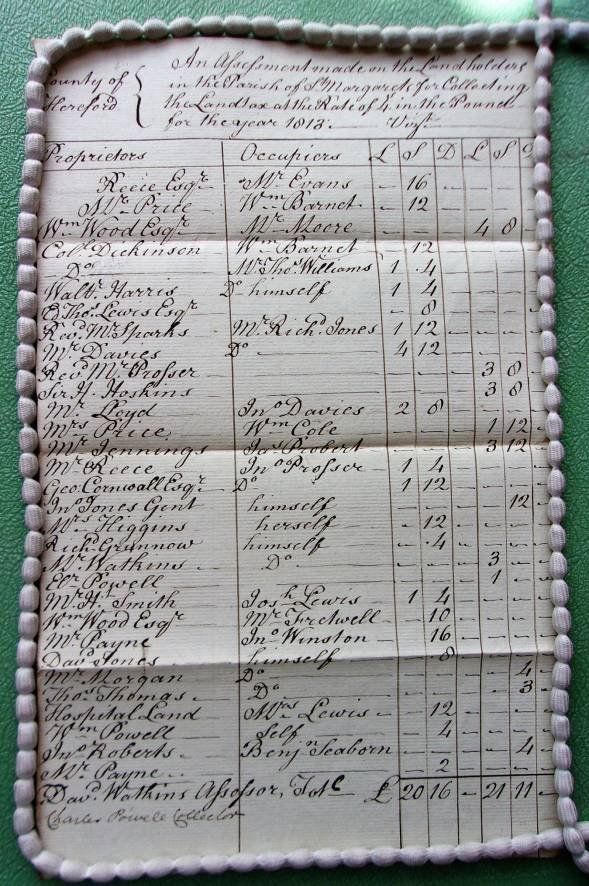 County of Hereford { An Assessment made on the Landholders
in the Parish of St Margarets for Collecting
the Landtax at the Rate of 4 in the Pound
for the year 1813. Vizt
Proprietors Occupiers £ S D £ S D
Reece Esqr Mr Evans - 16 - - - -
Mr Price Wm Barnet - 12 - - - -
Wm Wood Esqr Mr Moore - - - 4 8 -
Coll Dickinson Wm Barnet - 12 - - - -
Do Mr Thos Williams 1 4 - - - -
Waltr Harris Do himself 1 4 - - - -
Thos Lewis Esqr - 8 - - - -
Revd Mr Sparks Mr Richd Jones 1 12 - - - -
Mr Davies Do 4 12 - - - -
Revd Mr Prosser - - - 3 8 -
Sir H. Hoskins - - - 3 8 -
Mr Lloyd Jno Davies 2 8 - - - -
Mrs Price Wm Cole - - - 1 12 -
Mr Jennings Jas Probert - - - 3 12 -
Mr Reece Jno Prosser 1 4 - - - -
Geo Cornwall Esqr Do 1 12 - - - -
Jno Jones Gent himself - - - - 12 -
Mrs Higgins herself - 12 - - - -
Richd Grunnow himself - 4 - - - -
Mr Watkins Do - - - 3 - -
Elr Powell - - - 1 - -
Mr H. Smith Josh Lewis 1 4 - - - -
Wm Wood Esqr Mr Fretwell - 10 - - - -
Mr Payne Jno Winston - 16 - - - -
Davd Jones himself - 8 - - - -
Mr Morgan Do - - - - 4 -
Thos Thomas Do - - - - 3 -
Hospital Land Mrs Lewis - 12 - - - -
Wm Powell Self - 4 - - - -
Jno Roberts Benjn Seaborn - - - - 4 -
Mr Payne - 2 - - - -
Davd Watkins Assessor, Totl £ 20 16 - 21 11 -
Charles Powell Collector